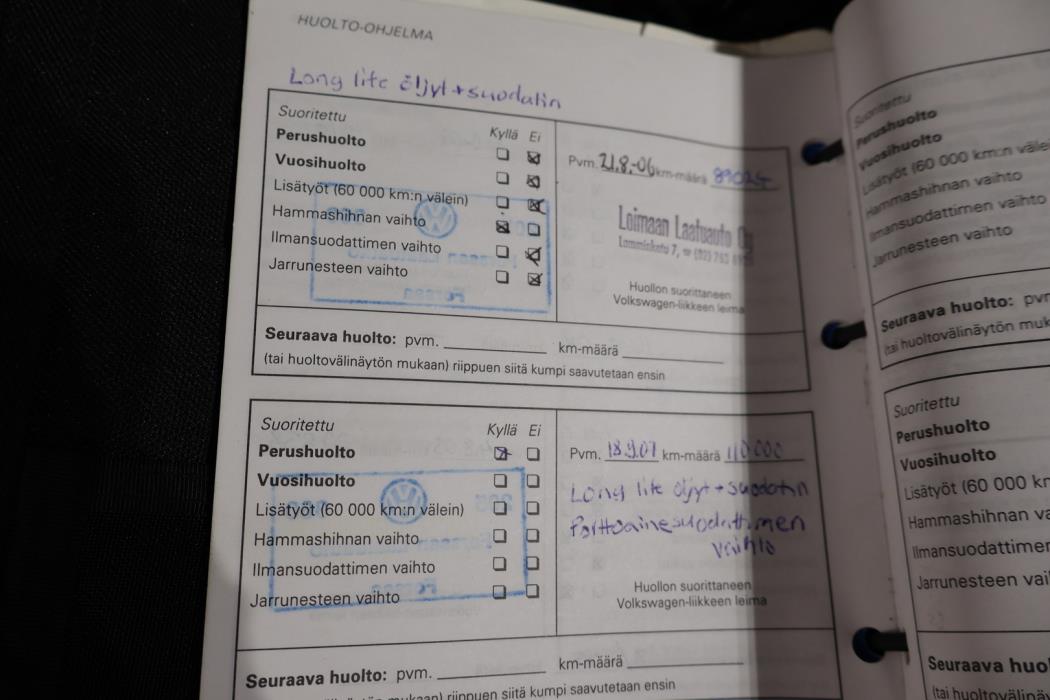 HUOLTO-OHJELMA
Long life öljyt + suodatin
Suoritettu
Kyllä Ei
Perushuolto
Vuosihuolto
Lisätyöt (60 000 km:n välein)
Hammashihnan vaihto
Ilmansuodattimen vaihto
Jarrunesteen vaihto
Pvm. 21.8.-06 km-määrä 89024
Loimaan Laatuauto Oy
Lamminkatu 7, ☎ (02) 763
Huollon suorittaneen
Volkswagen-liikkeen leima
Seuraava huolto: pvm. km-määrä
(tai huoltovälinäytön mukaan) riippuen siitä kumpi saavutetaan ensin
Suoritettu
Kyllä Ei
Perushuolto
Vuosihuolto
Lisätyöt (60 000 km:n välein)
Hammashihnan vaihto
Ilmansuodattimen vaihto
Jarrunesteen vaihto
Pvm. 18.9.07 km-määrä 110 000
Long life öljyt + suodatin
Polttoainesuodattimen
vaihto
Huollon suorittaneen
Volkswagen-liikkeen leima
Seuraava huolto: pvm. km-määrä
mukaan) riippuen siitä kumpi saavutetaan ensin
Suoritettu
Perushuolto
Vuosihuolto
Lisätyöt (60 000 km:n välein
Hammashihnan vaihto
Ilmansuodattimen vaihto
Jarrunesteen vaihto
Seuraava huolto: pvm
(tai huoltovälinäytön muk
Suoritettu
Perushuolto
Vuosihuolto
Lisätyöt (60 000 km
Hammashihnan va
Ilmansuodattimen
Jarrunesteen vai
Seuraava huol
(tai huoltovälinäy